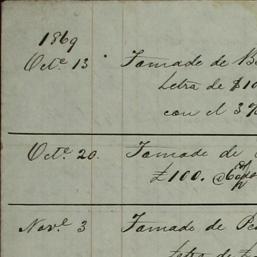 1869
Octe. 13 Tomado de Bo
Letra de £10
con el 3%
Octe. 20. Tomado de
£100. @ 60
Nove. 3 Tomado de Pe
Letra de